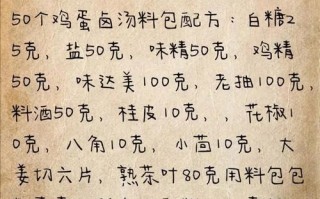 50个鸡蛋卤汤料包配方：白糖2
5克，盐50克，味精50克，鸡精
50克，味达美100克，老抽100克，
料酒50克，桂皮10克，，花椒1
0克，八角10克，小茴10克，大
姜切六片，熟茶叶80克用料包包